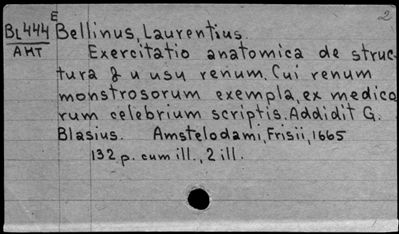 2
E
BL444 Bellinus, Laurentius.
AMT Exercitatio anatomica de struc-
tura & u usu renum. Cui renum
monstrosorum exempla, ex medico
rum celebrium scriptis. Addidit G.
Blasius. Amstelodami, Frisii, 1665
132 p. cum ill., 2 ill.